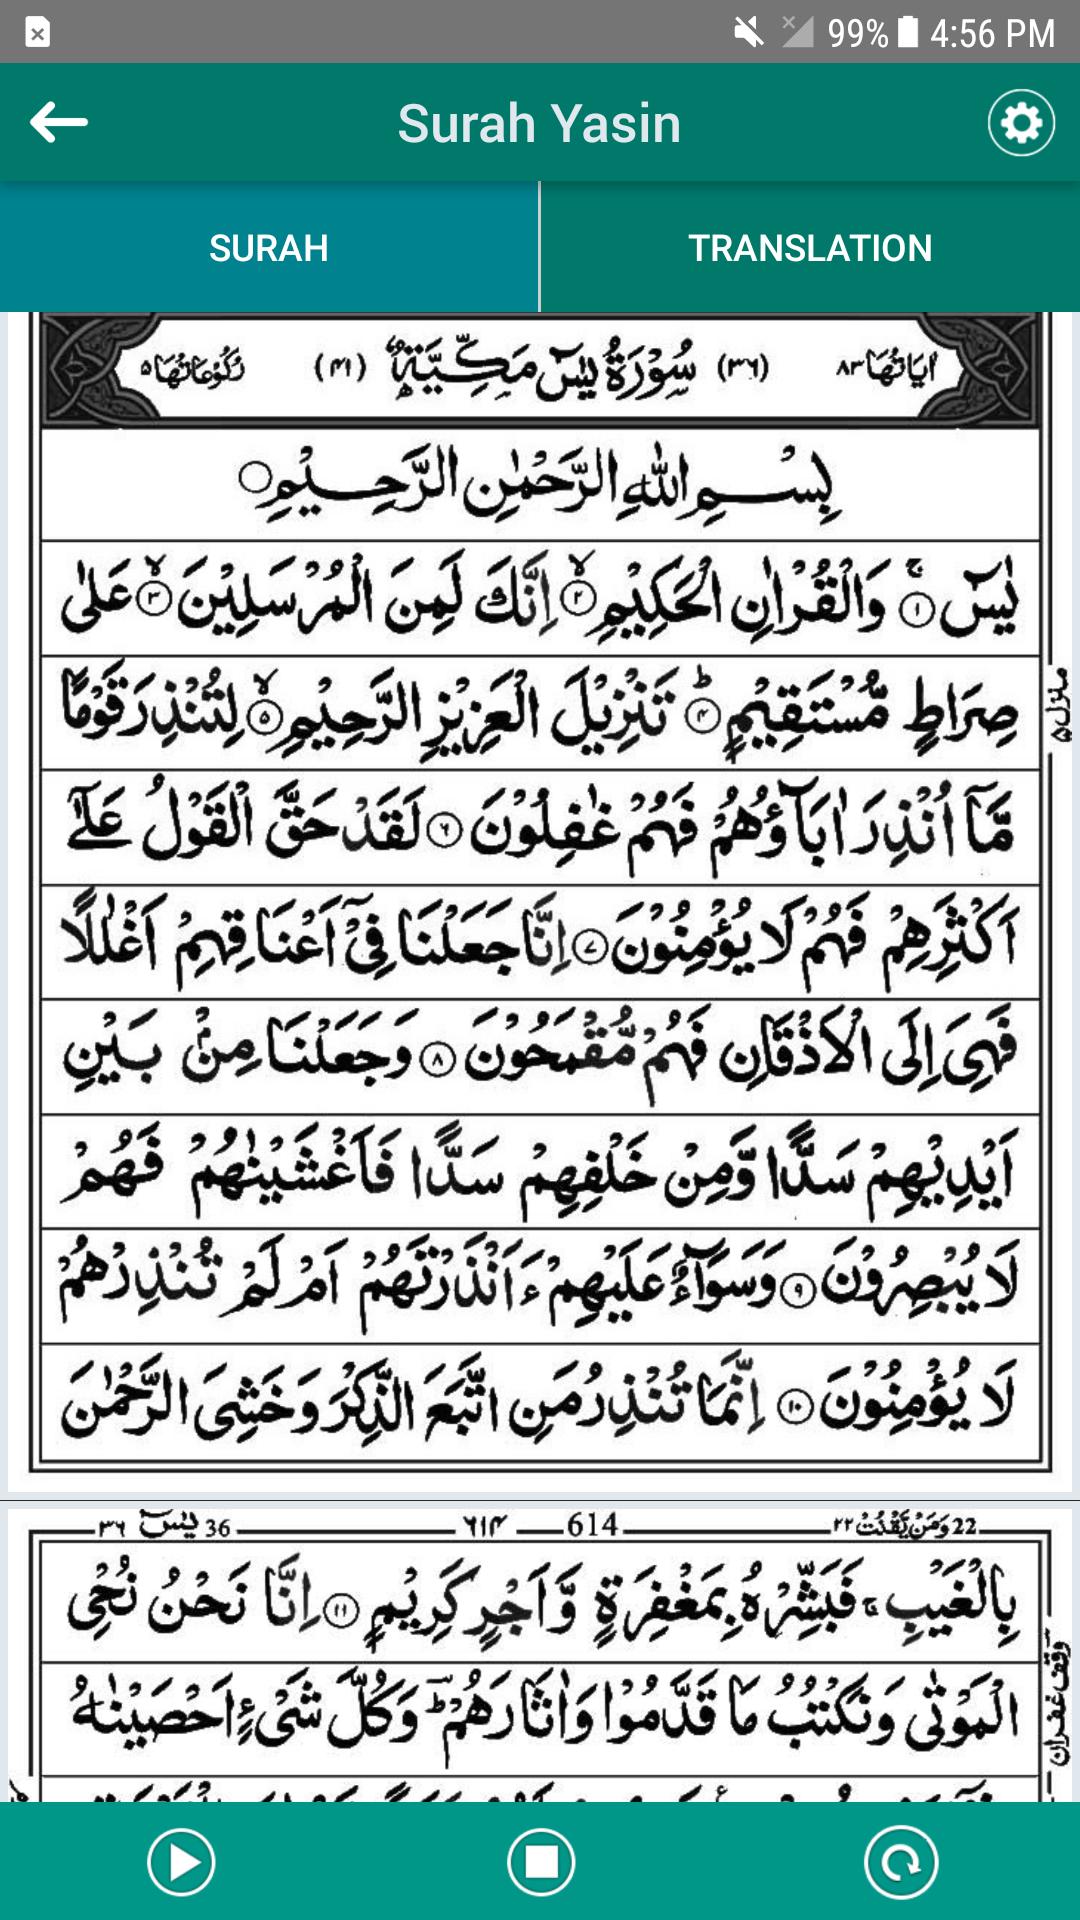 99% 4:56 PM
Surah Yasin
SURAH
TRANSLATION
اٰيَاتُهَا ٨٣ (٣٦) سُوْرَةُ يٰسٓ مَكِّيَّةٌ (٤١) رُكُوْعَاتُهَا ٥
بِسْمِ اللّٰهِ الرَّحْمٰنِ الرَّحِيْمِ
يٰسٓ ۚ ١ وَالْقُرْاٰنِ الْحَكِيْمِ ۙ ٢ اِنَّكَ لَمِنَ الْمُرْسَلِيْنَ ۙ ٣ عَلٰى
صِرَاطٍ مُّسْتَقِيْمٍ ؕ ٤ تَنْزِيْلَ الْعَزِيْزِ الرَّحِيْمِ ۙ ٥ لِتُنْذِرَ قَوْمًا
منزل ٥
مَّآ اُنْذِرَ اٰبَآؤُهُمْ فَهُمْ غٰفِلُوْنَ ٦ لَقَدْ حَقَّ الْقَوْلُ عَلٰٓى
اَكْثَرِهِمْ فَهُمْ لَا يُؤْمِنُوْنَ ٧ اِنَّا جَعَلْنَا فِيْٓ اَعْنَاقِهِمْ اَغْلٰلًا
فَهِيَ اِلَى الْاَذْقَانِ فَهُمْ مُّقْمَحُوْنَ ٨ وَجَعَلْنَا مِنْۢ بَيْنِ
اَيْدِيْهِمْ سَدًّا وَّمِنْ خَلْفِهِمْ سَدًّا فَاَغْشَيْنٰهُمْ فَهُمْ
لَا يُبْصِرُوْنَ ٩ وَسَوَآءٌ عَلَيْهِمْ ءَاَنْذَرْتَهُمْ اَمْ لَمْ تُنْذِرْهُمْ
لَا يُؤْمِنُوْنَ ١٠ اِنَّمَا تُنْذِرُ مَنِ اتَّبَعَ الذِّكْرَ وَخَشِيَ الرَّحْمٰنَ
22 وَمَنْ يَّقْنُتْ ٢٢ 614 ٦١٤ 36 يٰسٓ ٣٦
بِالْغَيْبِ ۚ فَبَشِّرْهُ بِمَغْفِرَةٍ وَّاَجْرٍ كَرِيْمٍ ١١ اِنَّا نَحْنُ نُحْيِ
الْمَوْتٰى وَنَكْتُبُ مَا قَدَّمُوْا وَاٰثَارَهُمْ ؕ وَكُلَّ شَيْءٍ اَحْصَيْنٰهُ
وقف غفران